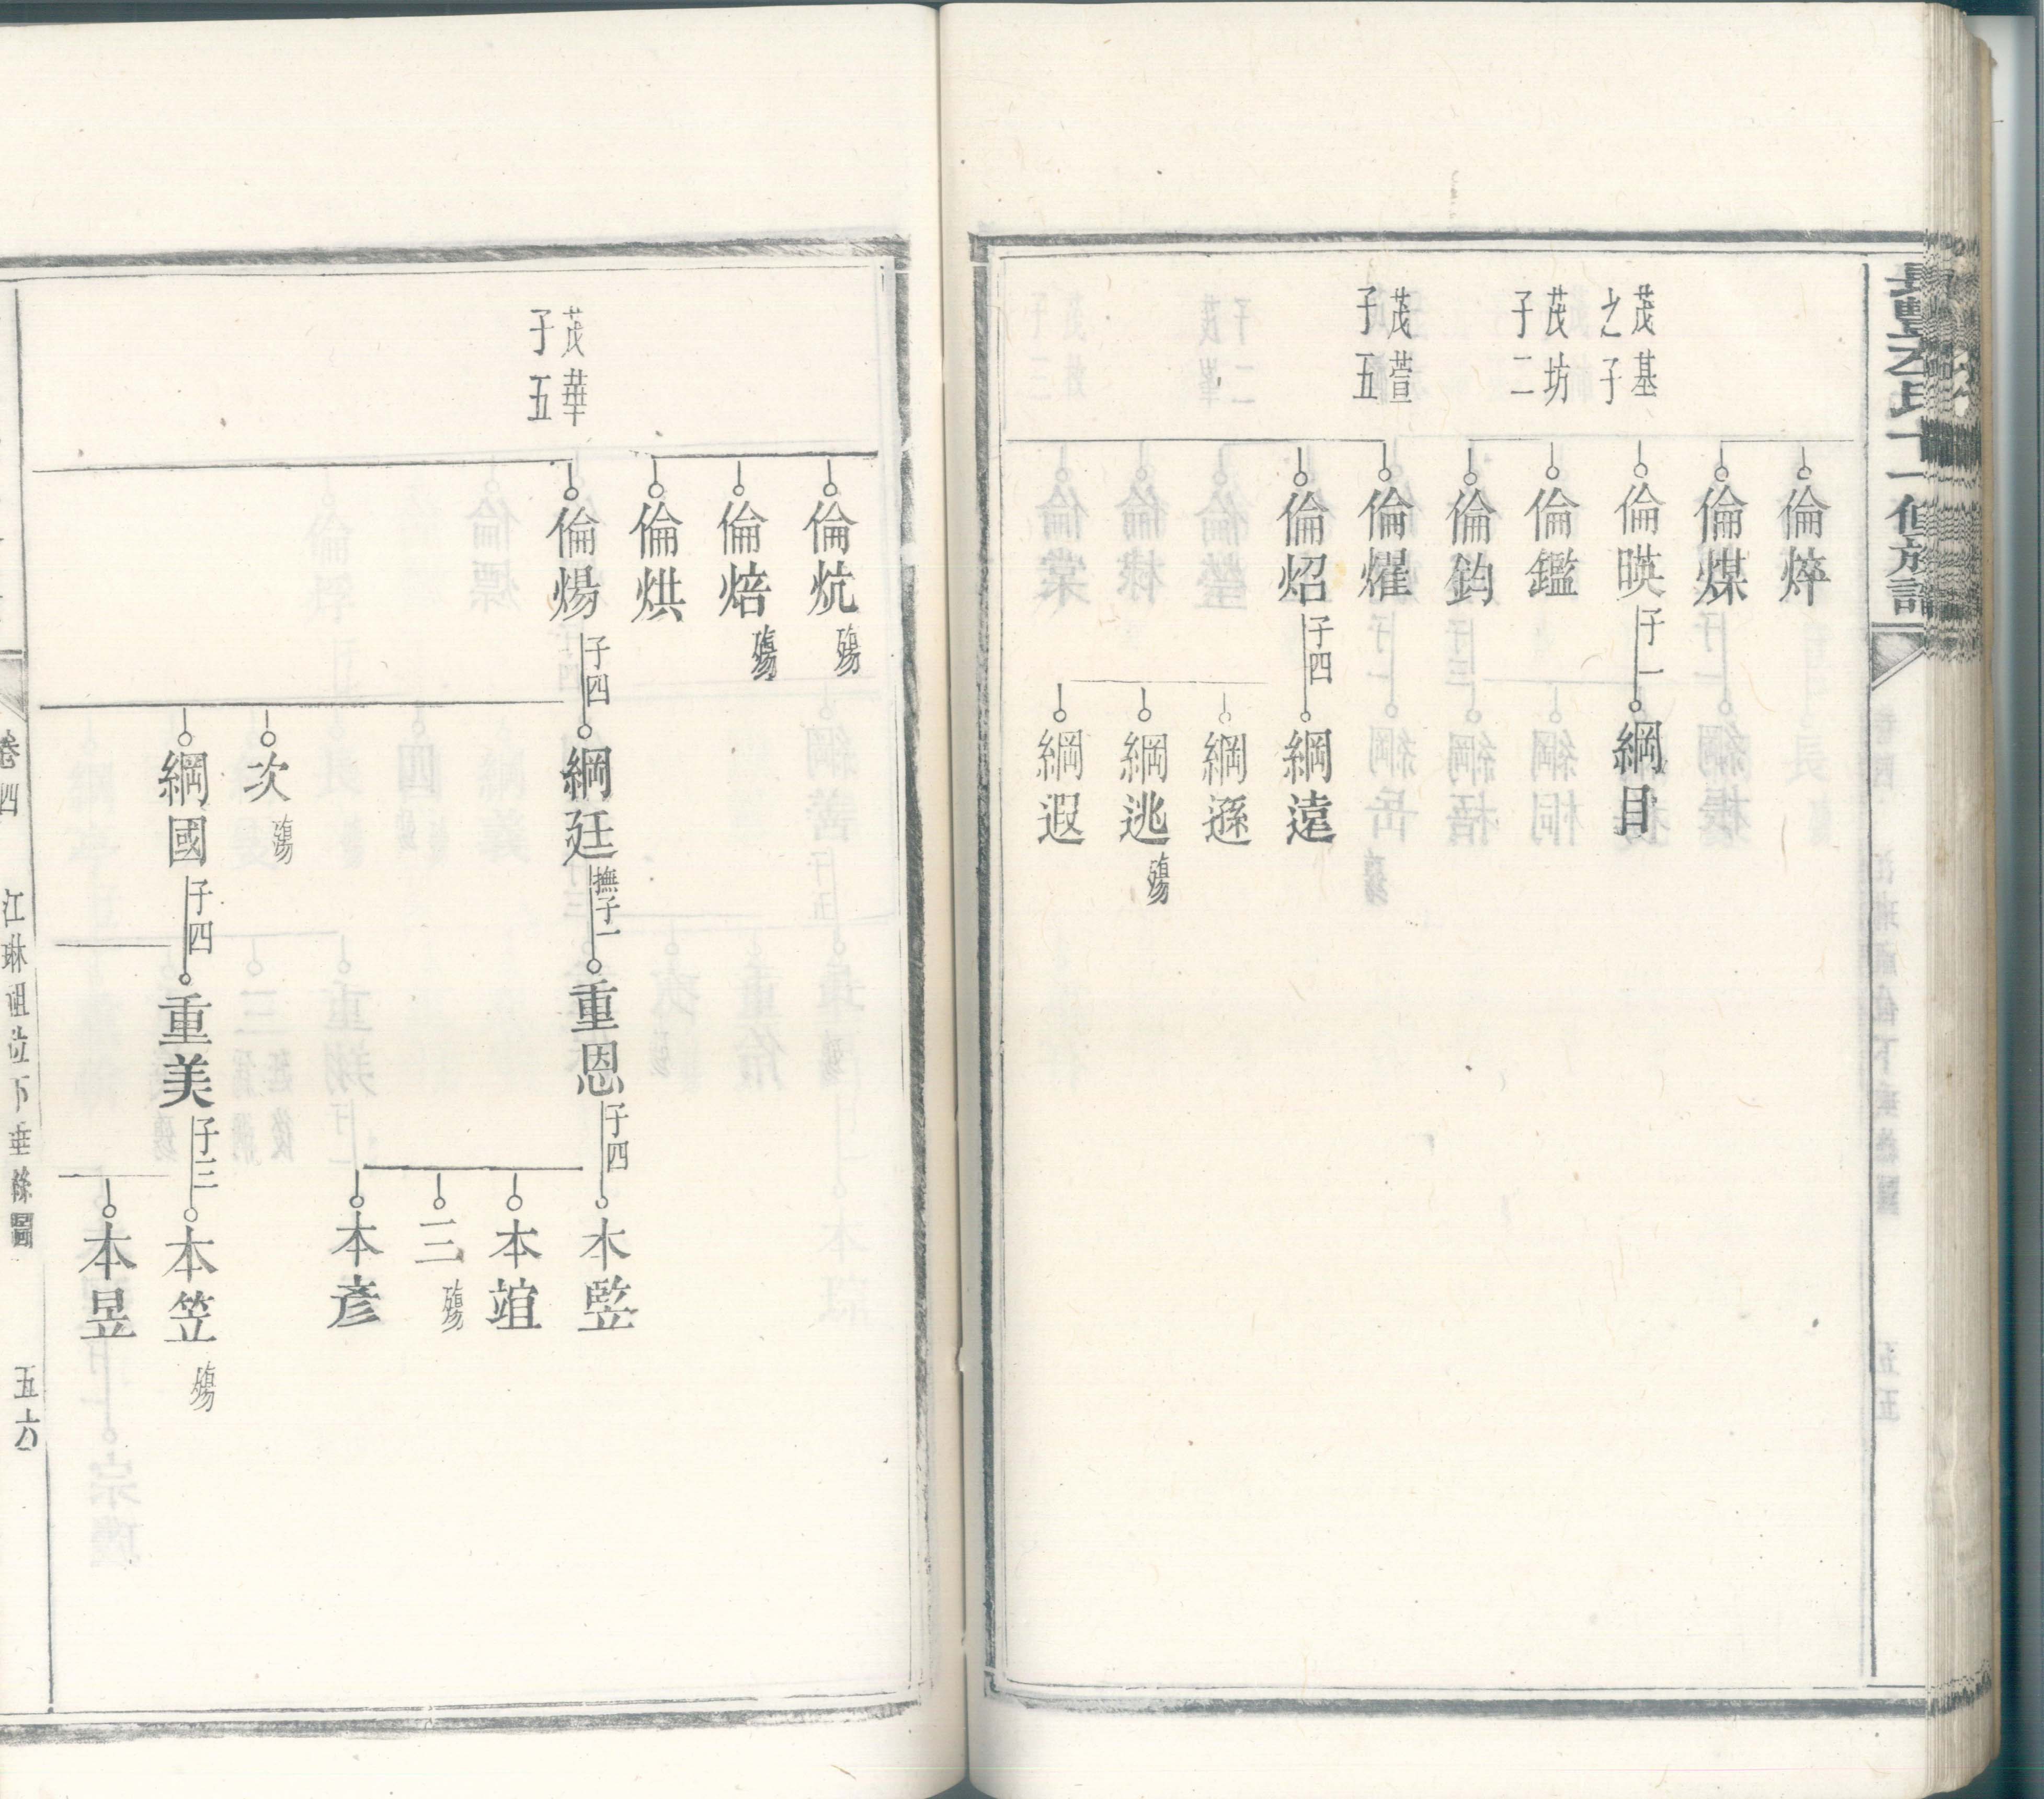 族譜
倫焠
倫煤
茂基
之子
倫暎
子一
綱目
茂坊
子二
倫鑑
倫鈞
茂萱
子五
倫燿
倫炤
子四
綱遠
綱遜
綱逃
殤
綱遐
倫炕
殤
倫焙
殤
倫烘
茂華
子五
倫煬
子四
綱廷
撫子一
重恩
子四
本監
本竩
三
殤
本彥
次
殤
綱國
子四
重美
子三
本笠
殤
本昱
卷四
江琳祖位下垂絲圖
五六